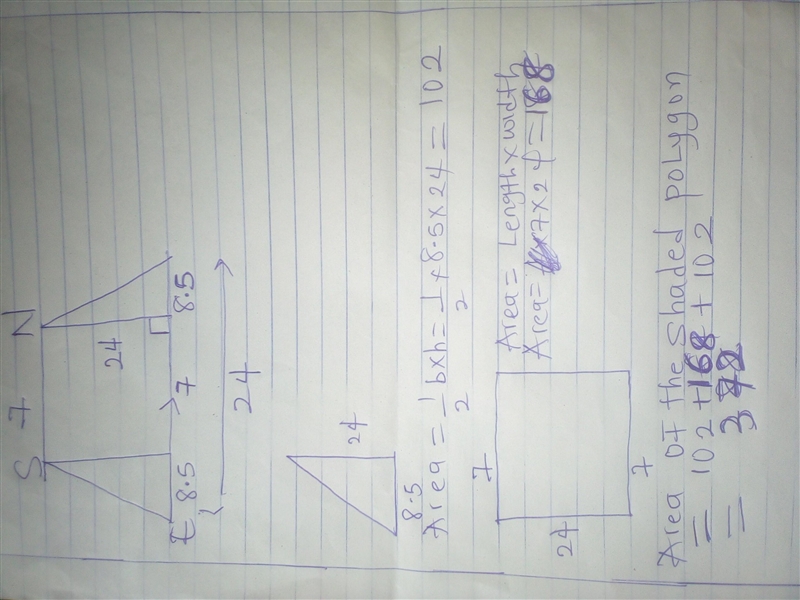 S 7 N
24
E 8.5 7 8.5
24
24
8.5
Area = 1/2 bxh = 1/2 x 8.5 x 24 = 102
7
24
7
Area = Length x width
Area = 7 x 24 = 168
Area of the shaded polygon
= 102 + 168 + 102
= 372